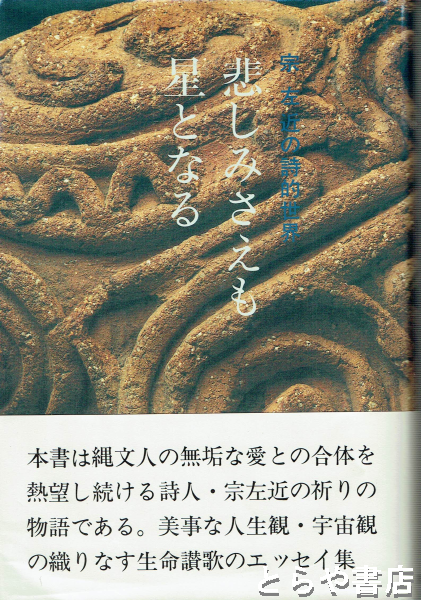 宗左近の詩的世界
悲しみさえも
星となる
本書は縄文人の無垢な愛との合体を
熱望し続ける詩人・宗左近の祈りの
物語である。美事な人生観・宇宙観
の織りなす生命讃歌のエッセイ集
とらや書店